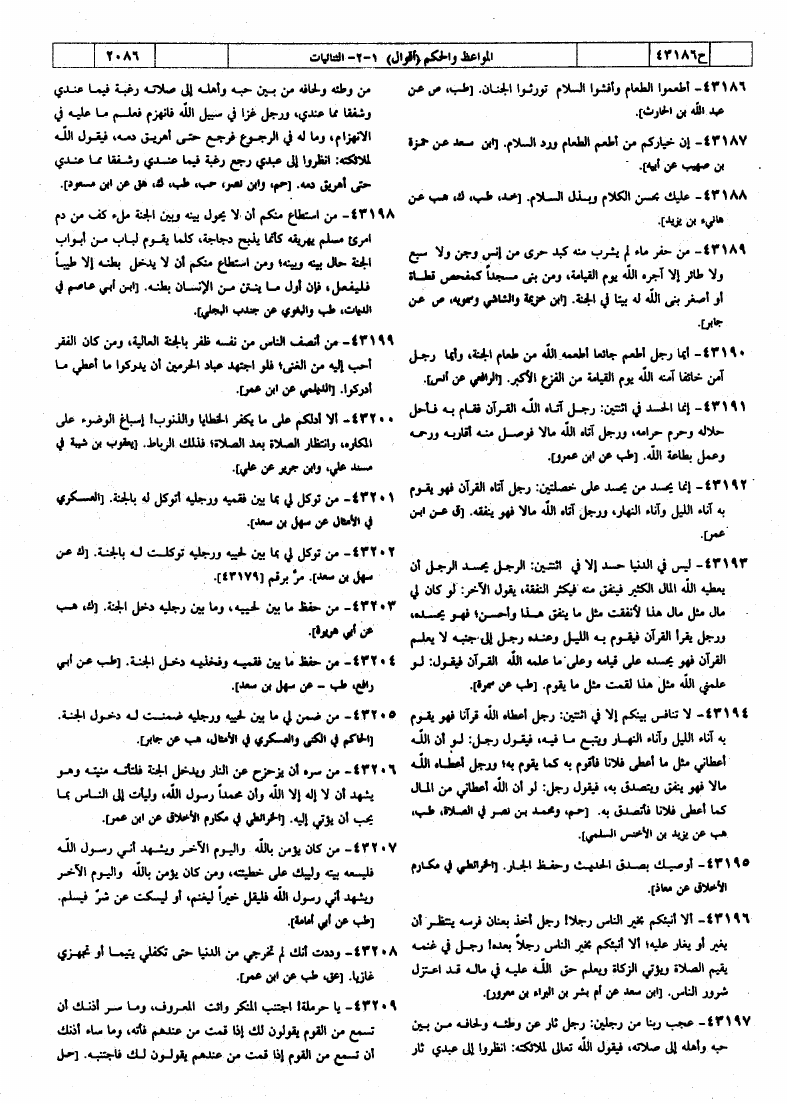 ح٤٣١٨٦
المواعظ والحكم (أقوال) ١-٢- الثنائيات
٢٠٨٦
٤٣١٨٦- أطعموا الطعام وأفشوا السلام تورثوا الجنان. [طب، ص عن
عبد الله بن الحارث].
٤٣١٨٧- إن خياركم من أطعم الطعام ورد السلام. [ابن سعد عن حمزة
بن صهيب عن أبيه].
٤٣١٨٨- عليك بحسن الكلام وبذل السلام. [خد، طب، ك، هب عن
هانىء بن يزيد].
٤٣١٨٩- من حفر ماء لم يشرب منه كبد حرى من إنس وجن ولا سبع
ولا طائر إلا آجره الله يوم القيامة، ومن بنى مسجداً كمفحص قطاة
أو أصغر بنى الله له بيتا في الجنة. [ابن خزيمة والشاشي وسمويه، ص عن
جابر].
٤٣١٩٠- أيما رجل أطعم جائعا أطعمه الله من طعام الجنة، وأيما رجل
آمن خائفا آمنه الله يوم القيامة من الفزع الأكبر. [الرافعي عن أنس].
٤٣١٩١- إنما الحسد في اثنتين: رجل آتاه الله القرآن فقام به فأحل
حلاله وحرم حرامه، ورجل آتاه الله مالا فوصل منه أقاربه ورحمه
وعمل بطاعة الله. [طب عن ابن عمرو].
٤٣١٩٢- إنما يحسد من يحسد على خصلتين: رجل آتاه القرآن فهو يقوم
به آناء الليل وآناء النهار، ورجل آتاه الله مالا فهو ينفقه. [ق عن ابن
عمر].
٤٣١٩٣- ليس في الدنيا حسد إلا في اثنتين: الرجل يحسد الرجل أن
يعطيه الله المال الكثير فينفق منه فيكثر النفقة، يقول الآخر: لو كان لي
مال مثل مال هذا لأنفقت مثل ما ينفق هذا وأحسن؛ فهو يحسده،
ورجل يقرأ القرآن فيقوم به الليل وعنده رجل إلى جنبه لا يعلم
القرآن فهو يحسده على قيامه وعلى ما علمه الله القرآن فيقول: لو
علمني الله مثل هذا لقمت مثل ما يقوم. [طب عن سمرة].
٤٣١٩٤- لا تنافس بينكم إلا في اثنتين: رجل أعطاه الله قرآنا فهو يقوم
به آناء الليل وآناء النهار ويتبع ما فيه، فيقول رجل: لو أن الله
أعطاني مثل ما أعطى فلانا فأقوم به كما يقوم به؛ ورجل أعطاه الله
مالا فهو ينفق ويتصدق به، فيقول رجل: لو أن الله أعطاني من المال
كما أعطى فلانا فأتصدق به. [حم، ومحمد بن نصر في الصلاة، طب،
هب عن يزيد بن الأخنس السلمي].
٤٣١٩٥- أوصيك بصدق الحديث وحفظ الجار. [الخرائطي في مكارم
الأخلاق عن معاذ].
٤٣١٩٦- ألا أنبئكم بخير الناس رجلا! رجل أخذ بعنان فرسه ينتظر أن
يغير أو يغار عليه؛ ألا أنبئكم بخير الناس رجلاً بعده! رجل في غنمه
يقيم الصلاة ويؤتي الزكاة ويعلم حق الله عليه في ماله قد اعتزل
شرور الناس. [ابن سعد عن أم بشر بن البراء بن معرور].
٤٣١٩٧- عجب ربنا من رجلين: رجل ثار عن وطئه ولحافه من بين
حبه وأهله إلى صلاته، فيقول الله تعالى لملائكته: انظروا إلى عبدي ثار
من وطئه ولحافه من بين حبه وأهله إلى صلاته رغبة فيما عندي
وشفقا مما عندي، ورجل غزا في سبيل الله فانهزم فعلم ما عليه في
الانهزام، وما له في الرجوع فرجع حتى أهريق دمه، فيقول الله
لملائكته: انظروا إلى عبدي رجع رغبة فيما عندي وشفقا مما عندي
حتى أهريق دمه. [حم، وابن نصر، حب، طب، ك، هق عن ابن مسعود].
٤٣١٩٨- من استطاع منكم أن لا يحول بينه وبين الجنة ملء كف من دم
امرئ مسلم يهريقه كأنما يذبح دجاجة، كلما يقوم لباب من أبواب
الجنة حال بينه وبينه؛ ومن استطاع منكم أن لا يدخل بطنه إلا طيباً
فليفعل، فإن أول ما ينتن من الإنسان بطنه. [ابن أبي عاصم في
الديات، طب والبغوي عن جندب البجلي].
٤٣١٩٩- من أنصف الناس من نفسه ظفر بالجنة العالية، ومن كان الفقر
أحب إليه من الغنى؛ فلو اجتهد عباد الحرمين أن يدركوا ما أعطي ما
أدركوا. [الديلمي عن ابن عمر].
٤٣٢٠٠- ألا أدلكم على ما يكفر الخطايا والذنوب! إسباغ الوضوء على
المكاره، وانتظار الصلاة بعد الصلاة؛ فذلك الرباط. [يعقوب بن شيبة في
مسند علي، وابن جرير عن علي].
٤٣٢٠١- من توكل لي بما بين فقميه ورجليه أتوكل له بالجنة. [العسكري
في الأمثال عن سهل بن سعد].
٤٣٢٠٢- من توكل لي بما بين لحييه ورجليه توكلت له بالجنة. [ك عن
سهل بن سعد]. مرّ برقم [٤٣١٧٩].
٤٣٢٠٣- من حفظ ما بين لحييه، وما بين رجليه دخل الجنة. [ك، هب
عن أبي هريرة].
٤٣٢٠٤- من حفظ ما بين فقميه وفخذيه دخل الجنة. [طب عن أبي
رافع، طب - عن سهل بن سعد].
٤٣٢٠٥- من ضمن لي ما بين لحييه ورجليه ضمنت له دخول الجنة.
[الحاكم في الكنى والعسكري في الأمثال، هب عن جابر].
٤٣٢٠٦- من سره أن يزحزح عن النار ويدخل الجنة فلتأته منيته وهو
يشهد أن لا إله إلا الله وأن محمداً رسول الله، وليأت إلى الناس بما
يحب أن يؤتي إليه. [الخرائطي في مكارم الأخلاق عن ابن عمر].
٤٣٢٠٧- من كان يؤمن بالله واليوم الآخر ويشهد أني رسول الله
فليسعه بيته وليبك على خطيئته، ومن كان يؤمن بالله واليوم الآخر
ويشهد أني رسول الله فليقل خيراً ليغنم، أو ليسكت عن شرّ فيسلم.
[طب عن أبي أمامة].
٤٣٢٠٨- وددت أنك لم تخرجي من الدنيا حتى تكفلي يتيما أو تجهزي
غازيا. [عق، طب عن ابن عمر].
٤٣٢٠٩- يا حرملة! اجتنب المنكر وائت المعروف، وما سر أذنك أن
تسمع من القوم يقولون لك إذا قمت من عندهم فأته، وما ساء أذنك
أن تسمع من القوم إذا قمت من عندهم يقولون لك فاجتنبه. [حل